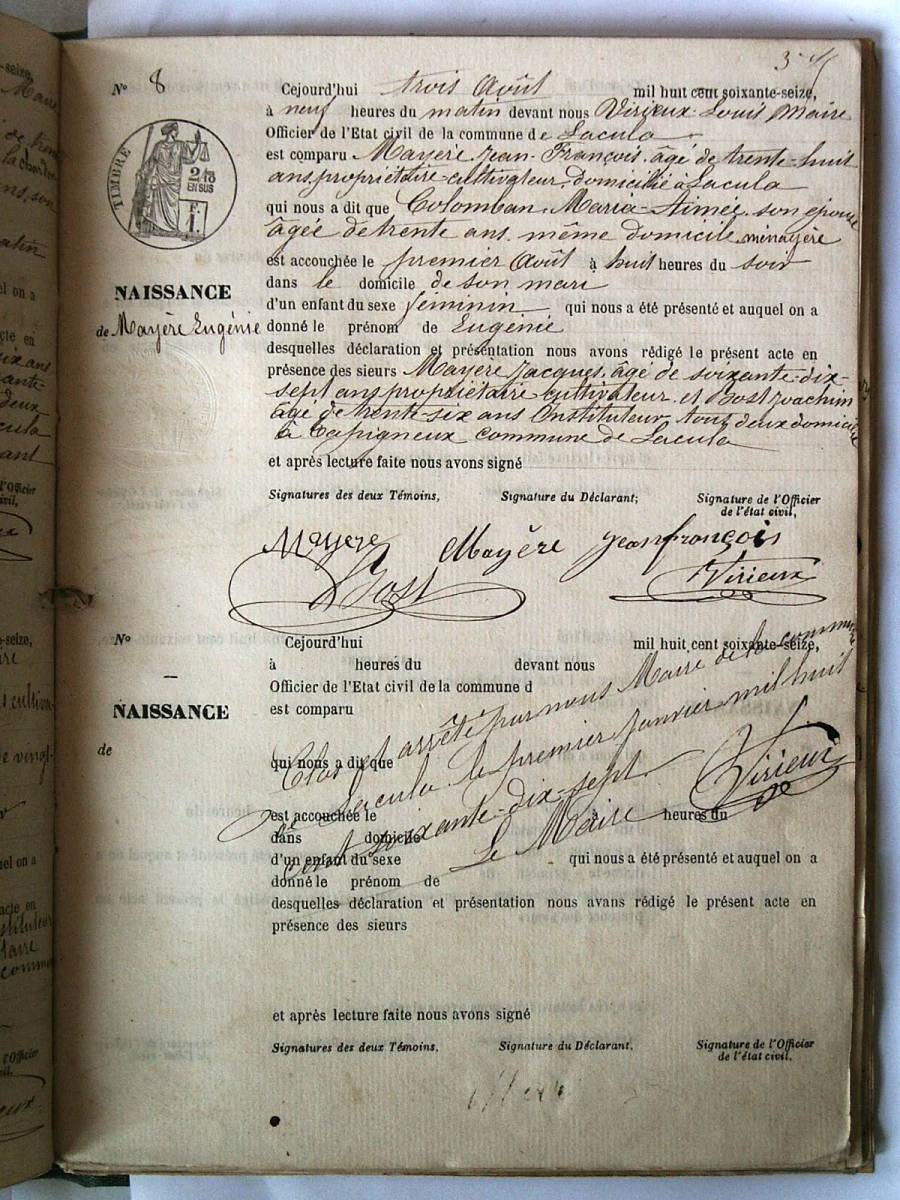 N° 8
Cejourd'hui trois Août mil huit cent soixante-seize,
à neuf heures du matin devant nous Virieux Louis Maire
Officier de l'Etat civil de la commune de Lacula
est comparu Mayère Jean-François, âgé de trente-huit
ans, propriétaire-cultivateur, domicilié à Lacula
qui nous a dit que Colomban Maria-Aimée, son épouse
âgée de trente ans même domicile, ménagère
est accouchée le premier Août à huit heures du soir
dans le domicile de son mari
d'un enfant du sexe féminin qui nous a été présenté et auquel on a
donné le prénom de Eugénie
desquelles déclaration et présentation nous avons rédigé le présent acte en
présence des sieurs Mayère Jacques, âgé de soixante-dix-
sept ans propriétaire cultivateur et Jost Joachim
âgé de trente-six ans Instituteur, tous deux domiciliés
à commune de Lacula
et après lecture faite nous avons signé
TIMBRE
2/10
EN SUS
NAISSANCE
de Mayère Eugénie
Signatures des deux Témoins, Signature du Déclarant; Signature de l'Officier
de l'état civil,
Mayère Mayère jeanfrançois
Jost Virieux
N°
Cejourd'hui mil huit cent soixante-seize,
à heures du devant nous
Officier de l'Etat civil de la commune d
est comparu
NAISSANCE
de
qui nous a dit que
est accouchée le heures du
dans domicile
d'un enfant du sexe qui nous a été présenté et auquel on a
donné le prénom de
desquelles déclaration et présentation nous avans rédigé le présent acte en
présence des sieurs
Clos et arrêté par nous Maire de la commune
de Lacula le premier janvier mil huit
cent soixante-dix-sept
Le Maire
Virieux
et après lecture faite nous avons signé
Signatures des deux Témoins, Signature du Déclarant, Signature de l'Officier
de l'état civil,